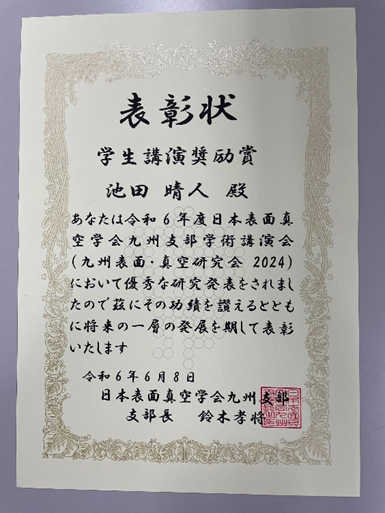 表彰状
学生講演奨励賞
池田 晴人 殿
あなたは令和6年度日本表面真
空学会九州支部学術講演会
(九州表面・真空研究会 2024)
において優秀な研究発表をされまし
たので茲にその功績を讃えるととも
に将来の一層の発展を期して表彰
いたします
令和6年6月8日
日本表面真空学会九州支部
支部長 鈴木孝将